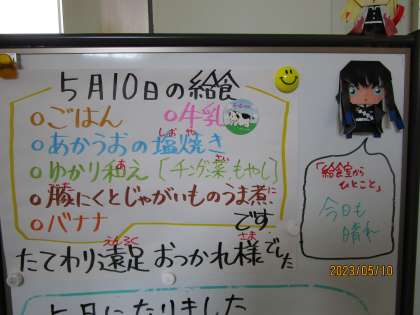 5月10日の給食
○ごはん ○牛乳
○あかうおの塩焼き
○ゆかり和え [チンゲン菜、もやし]
○豚にくとじゃがいものうま煮
○バナナ です
たてわり遠足おつかれ様でした
5月になりました
「給食室から
ひとこと」
今日も
晴れ
2023/05/10